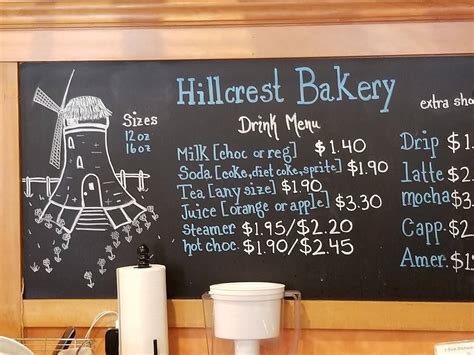 Hillcrest Bakery
Sizes
12 oz
16 oz
Drink Menu
Milk [choc or reg] $1.40
Soda [coke, diet coke, sprite] $1.90
Tea [any size] $1.90
Juice [orange or apple] $3.30
steamer $1.95/$2.20
hot choc. $1.90/$2.45
extra sho
Drip $1.
latte $2.
mocha $3.
Capp. $2
Amer. $1.